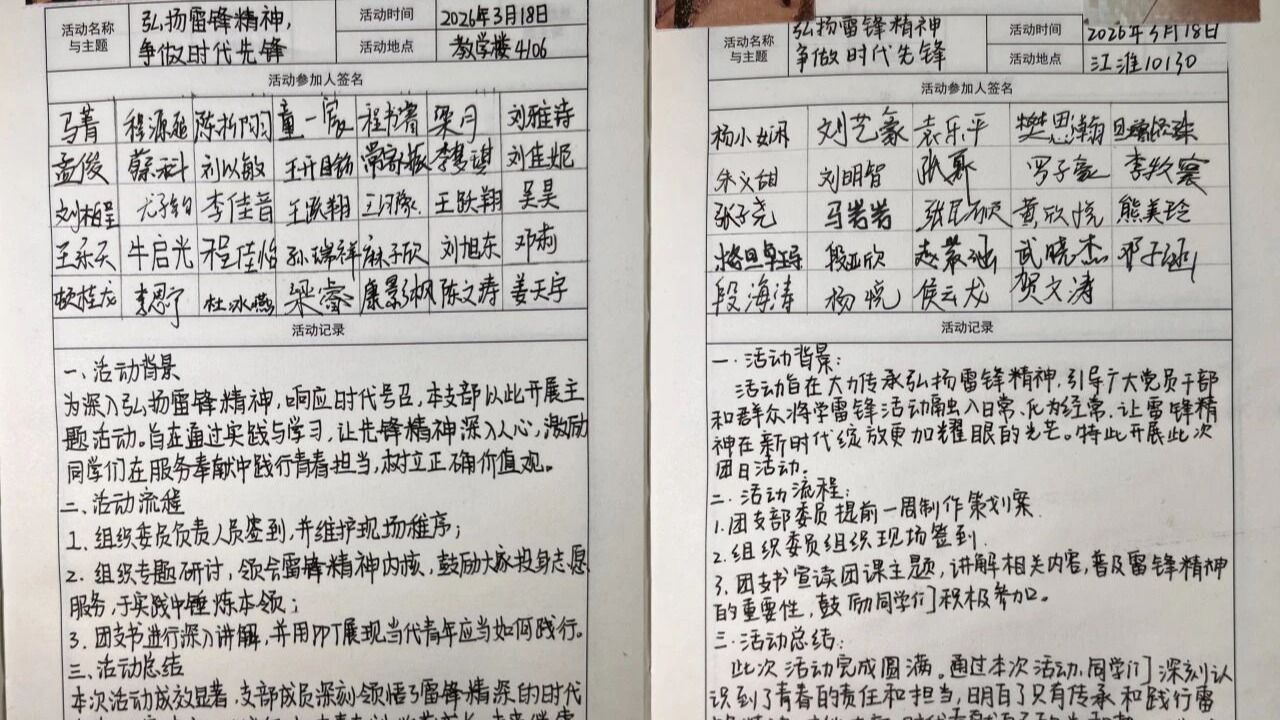 活动名称与主题
弘扬雷锋精神,
争做时代先锋
活动时间
2026年3月18日
活动地点
教学楼4106
活动参加人签名
马菁 童一宸 程书睿 梁月 刘雅诗
孟俊 蔡科 刘以敏 刘佳妮
刘柏呈 李佳音 王跃翔 吴昊
王乐天 牛启光 程佳怡 孙瑞祥 麻子欣 刘旭东 邓莉
李恩宁 杜冰燕 梁睿 康景淞 陈文涛 姜天宇
活动记录
一、活动背景
为深入弘扬雷锋精神,响应时代号召,本支部以此开展主
题活动。旨在通过实践与学习,让先锋精神深入人心,激励
同学们在服务奉献中践行青春担当,树立正确价值观。
二、活动流程
1. 组织委员负责人员签到,并维护现场秩序;
2. 组织专题研讨,领会雷锋精神内核,鼓励大家投身志愿
服务,于实践中锤炼本领;
3. 团支书进行深入讲解,并用PPT展现当代青年应当如何践行。
三、活动总结
本次活动成效显著,支部成员深刻领悟了雷锋精深的时代
活动名称与主题
弘扬雷锋精神
争做时代先锋
活动时间
2026年3月18日
活动地点
江淮10130
活动参加人签名
杨小娴 刘艺豪 袁乐平 樊思翰
朱义甜 刘明智 罗子豪 李牧襄
张子尧 马岩岩 黄欣悦 熊美玲
段亚欣 武晓杰 邓子涵
段海涛 杨悦 侯云龙 贺文涛
活动记录
一. 活动背景:
活动旨在大力传承弘扬雷锋精神,引导广大党员干部
和群众将学雷锋活动融入日常、化为经常,让雷锋精
神在新时代绽放更加耀眼的光芒。特此开展此次
团日活动.
二. 活动流程:
1.团支部委员提前一周制作策划案.
2.组织委员组织现场签到.
3.团支书宣读团课主题,讲解相关内容,普及雷锋精神
的重要性,鼓励同学们积极参加。
三.活动总结:
此次活动完成圆满。通过本次活动,同学们深刻认
识到了青春的责任和担当,明白了只有传承和践行雷